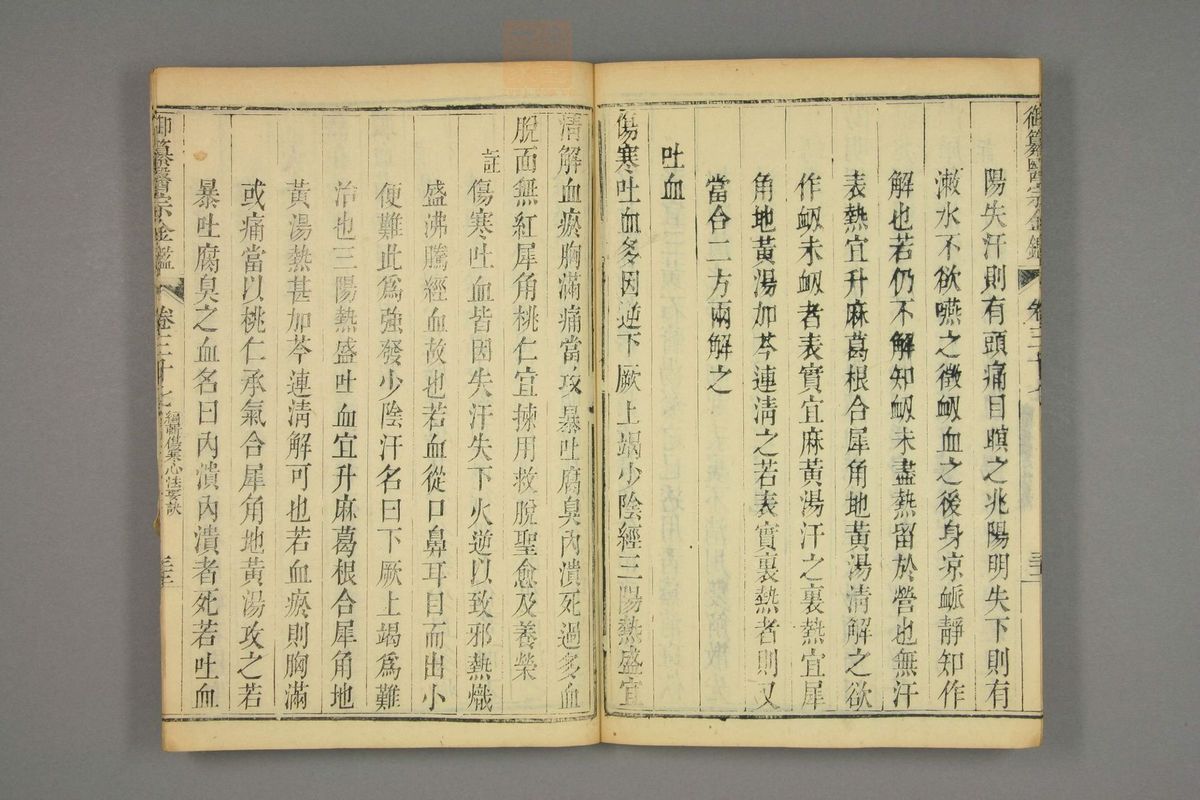 御纂醫宗金鑑
陽失汗則有頭痛目瞑之兆陽明失下則有
漱水不欲嚥之徵衂血之後身凉脈靜知作
解也若仍不解知衂未盡熱留於營也無汗
表熱宜升麻葛根合犀角地黃湯清解之欲
作衂未衂者表實宜麻黃湯汗之裏熱宜犀
角地黃湯加芩連清之若表實裏熱者則又
當合二方兩解之
吐血
傷寒吐血多因逆下厥上竭少陰經三陽熱盛宜
清解血瘀胸滿痛當攻暴吐腐臭內潰死過多血
脫面無紅犀角桃仁宜揀用救脫聖愈及養榮
註傷寒吐血皆因失汗失下火逆以致邪熱熾
盛沸騰經血故也若血從口鼻耳目而出小
便難此爲強發少陰汗名曰下厥上竭爲難
治也三陽熱盛吐血宜升麻葛根合犀角地
黃湯熱甚加芩連淸解可也若血瘀則胸滿
或痛當以桃仁承氣合犀角地黃湯攻之若
暴吐腐臭之血名曰內潰內潰者死若吐血
御纂醫宗金鑑 卷三十七 編輯傷寒心法要訣